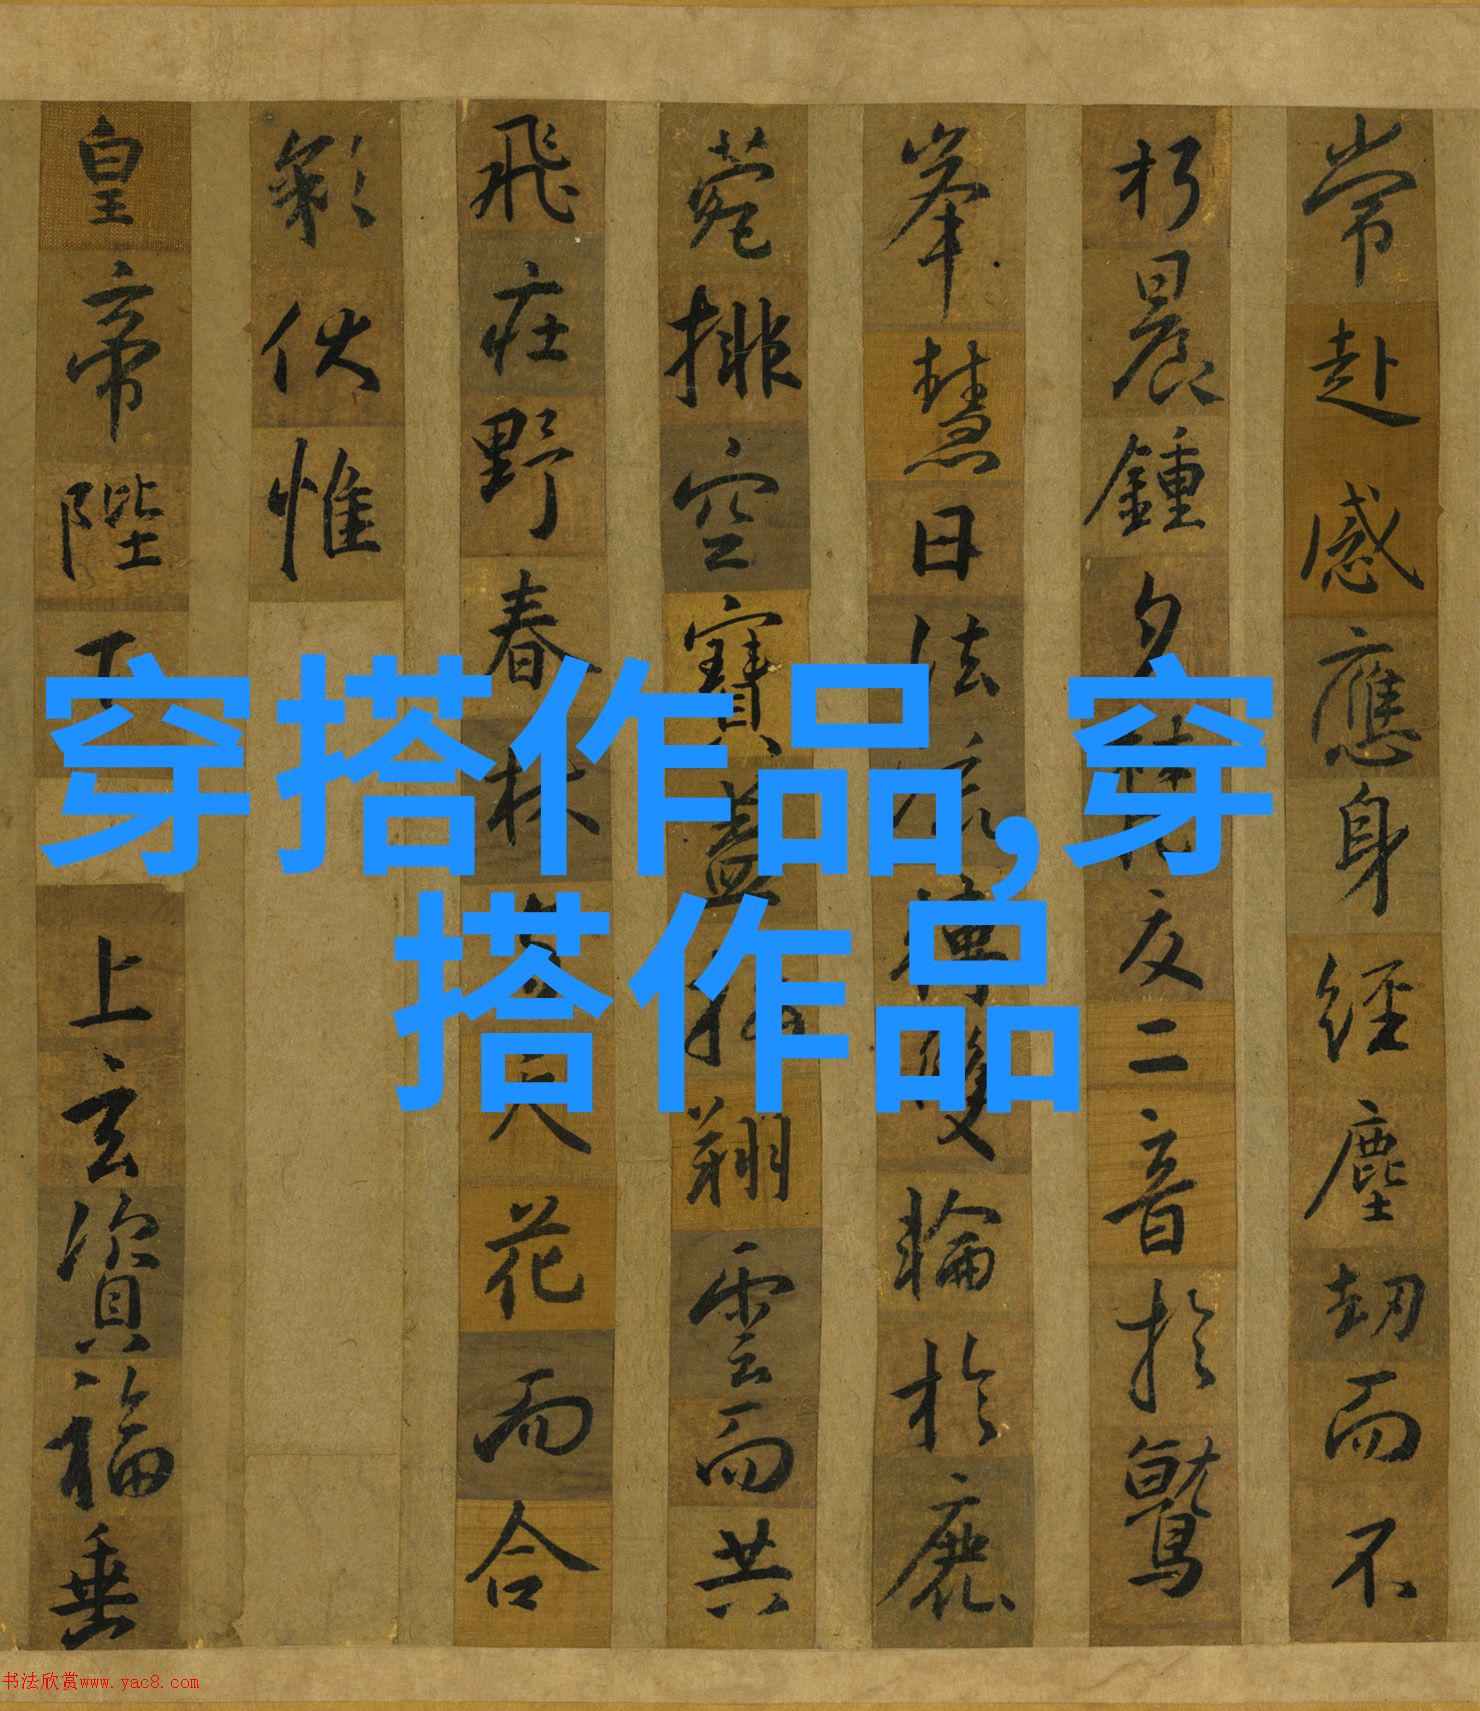 常赴感應身經塵劫而不
朽晨鍾夕梵交二音於鷲
峯慧日法流轉雙輪於鹿
菀排空寶蓋接翔雲而共
飛莊野春林與天花而合
彩伏惟
皇帝陛下上玄資福垂
穿搭作品,穿
搭作品
书法欣赏www.yac8.com